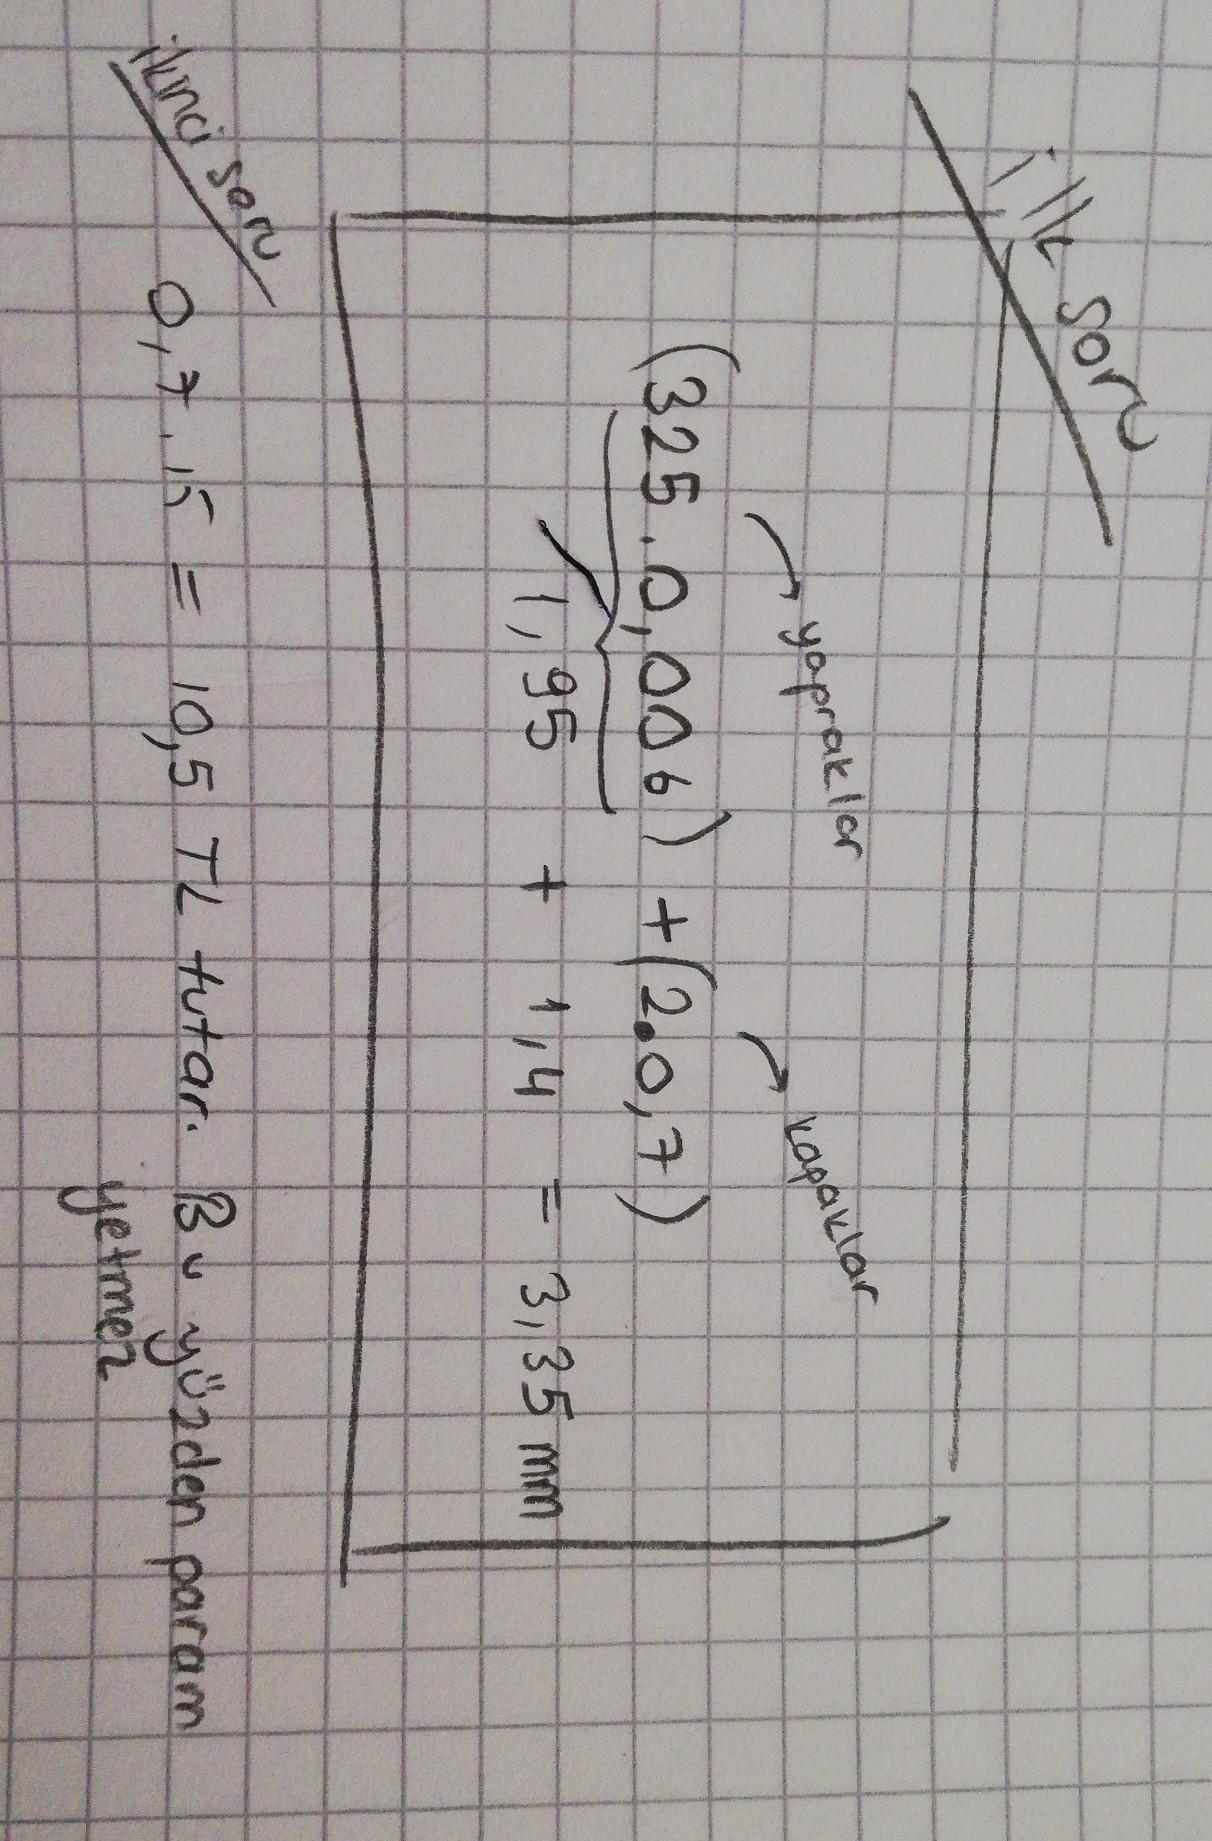 ilk soru
yapraklar kapaklar
(325.0,006) + (2.0,7)
1,95 + 1,4 = 3,35 mm
ikinci soru
0,7.15 = 10,5 TL tutar. Bu yüzden param
yetmez